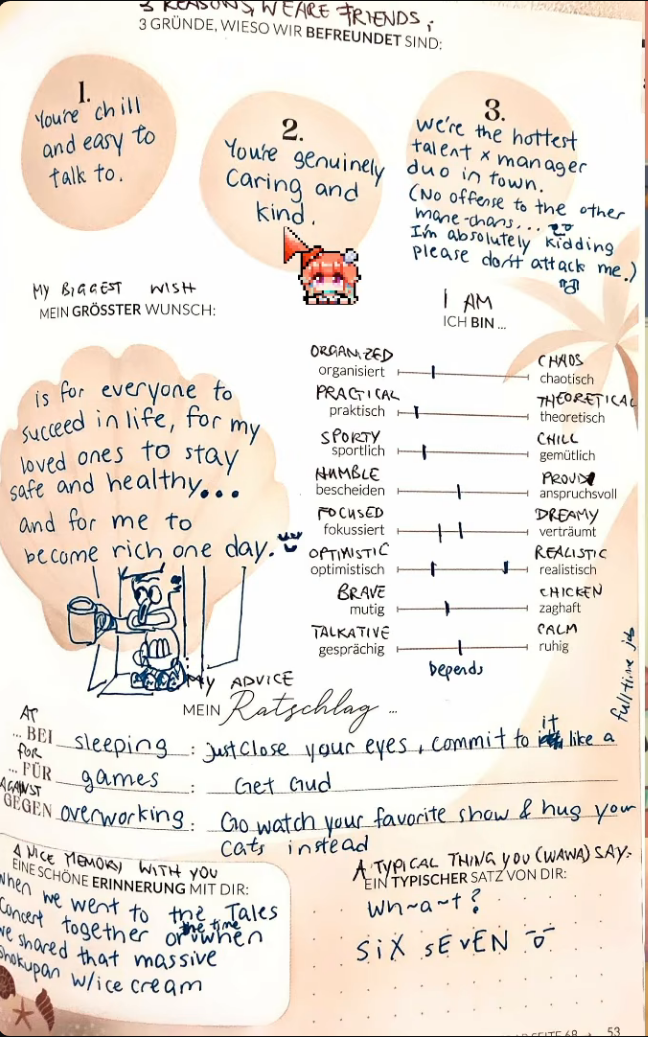 3 REASONS, WE ARE FRIENDS;
3 GRÜNDE, WIESO WIR BEFREUNDET SIND:
1.
You're chill
and easy to
talk to.
2.
You're genuinely
caring and
kind.
3.
We're the hottest
talent x manager
duo in town.
(No offense to the other
mane-chans...
I'm absolutely kidding
please don't attack me.)
MY BIGGEST WISH
MEIN GRÖSSTER WUNSCH:
is for everyone to
succeed in life, for my
loved ones to stay
safe and healthy...
and for me to
become rich one day.
I AM
ICH BIN ...
ORGANIZED CHAOS
organisiert chaotisch
PRACTICAL THEORETICAL
praktisch theoretisch
SPORTY CHILL
sportlich gemütlich
HUMBLE PROUD
bescheiden anspruchsvoll
FOCUSED DREAMY
fokussiert verträumt
OPTIMISTIC REALISTIC
optimistisch realistisch
BRAVE CHICKEN
mutig zaghaft
TALKATIVE CALM
gesprächig ruhig
depends
MY ADVICE
MEIN Ratschlag ...
AT
... BEI sleeping : Just close your eyes, commit to it like a full-time job
FOR
... FÜR games : Get Gud
AGAINST
GEGEN overworking : Go watch your favorite show & hug your
cats instead
A NICE MEMORY WITH YOU
EINE SCHÖNE ERINNERUNG MIT DIR:
When we went to the Tales
Concert together or the time when
we shared that massive
shokupan w/ice cream
A TYPICAL THING YOU (WAWA) SAY:
EIN TYPISCHER SATZ VON DIR:
Wh~a~t?
SiX sEvEN
53